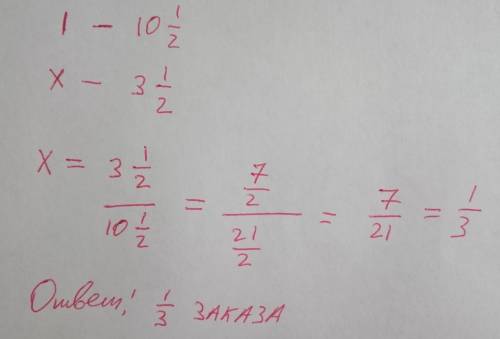 1 - 10 1/2
X - 3 1/2
X = 3 1/2 / 10 1/2 = 7/2 / 21/2 = 7/21 = 1/3
Ответ: 1/3 ЗАКАЗА